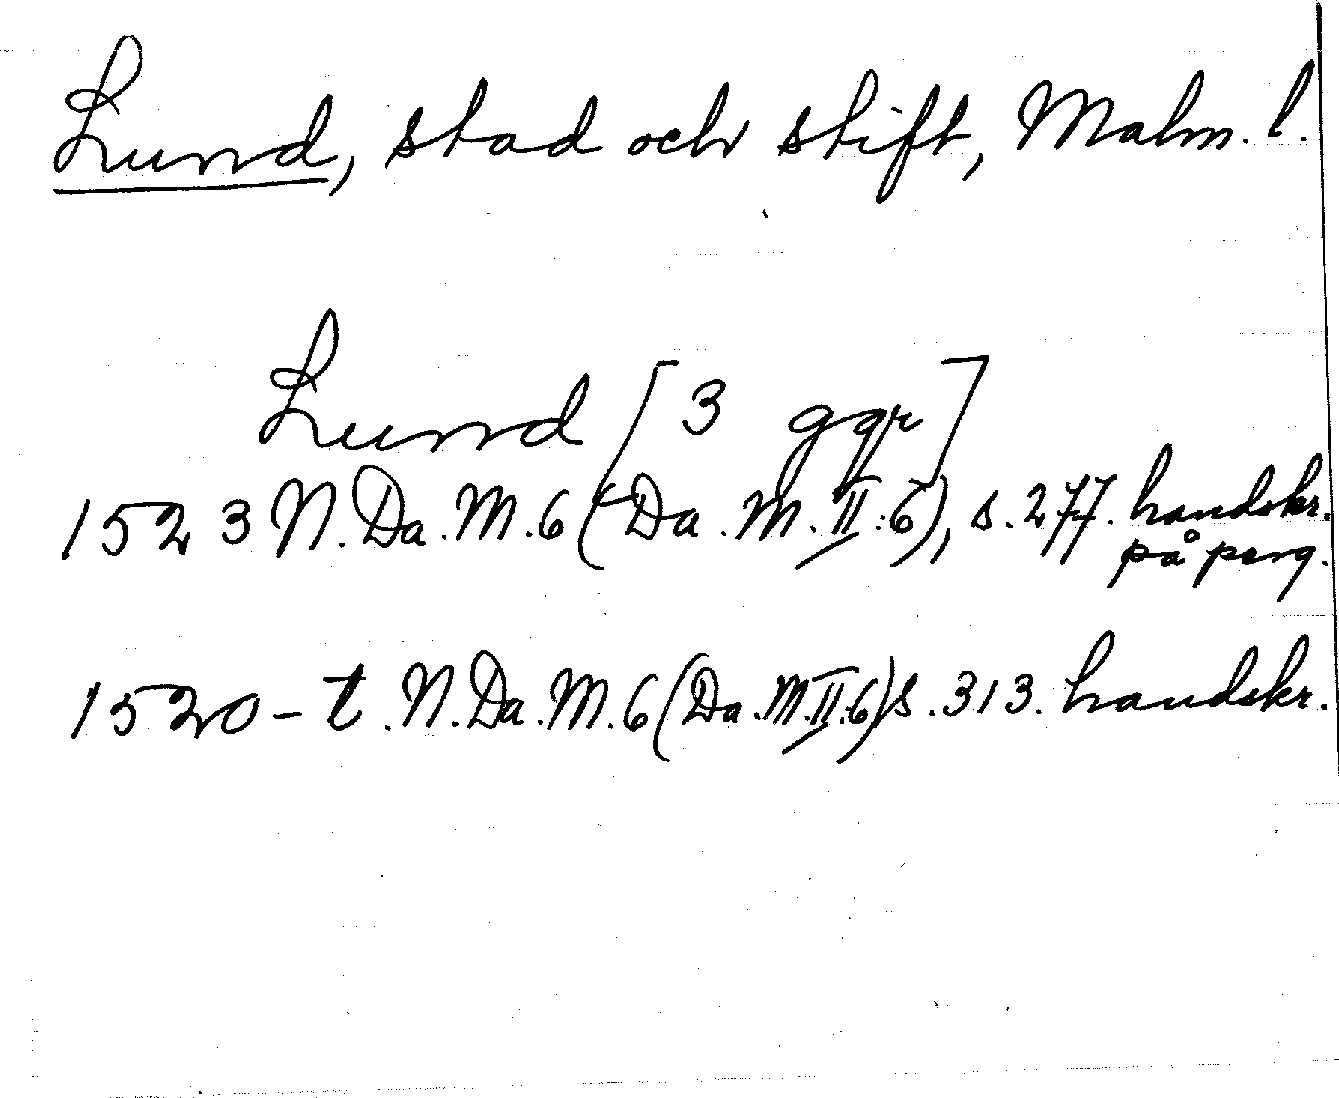 Lund, stad och stift, Malm. l.
Lund [3 ggr]
1523 N. Da. M. 6 (Da. M. II. 6), s. 277. handskr.
på perg.
1520-t. N. Da. M. 6 (Da. M. II. 6) s. 313. handskr.